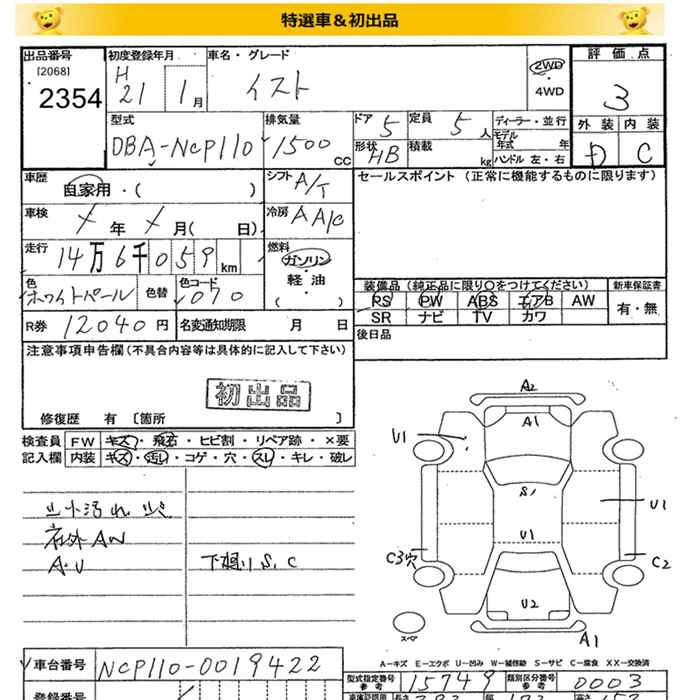 特選車＆初出品
出品番号
[2068]
2354
初度登録年月
H
21 1月
車名・グレード
イスト
2WD
・
4WD
評価点
3
外装 内装
D C
型式
DBA-NCP110
排気量
1500 CC
ドア 5
形状 HB
定員 5 人
積載 kg
ディーラー・並行
モデル年式 年
ハンドル 左・右
車歴
自家用・( )
シフト A/T
セールスポイント (正常に機能するものに限ります)
車検
年 月( 日)
冷房 AA/C
走行
14万6千059km
燃料
ガソリン
・
軽油
( )
色
ホワイトパール
色替
色コード
070
装備品 (純正品に限り○をつけてください)
新車保証書
PS PW ABS エアB AW
SR ナビ TV カワ
有・無
R券 12040円
名変通知期限 月 日
後日品
注意事項申告欄(不具合内容等は具体的に記入して下さい)
初出品
修復歴 有 〔箇所 〕
検査員
記入欄
FW キズ・飛石・ヒビ割・リペア跡・×要
内装 キズ・汚れ・コゲ・穴・スレ・キレ・破レ
シート汚れ
社外AW
A・U
下廻りS、C
A2
A1
U1
S1
U1
U1
C3穴
C2
U2
A1
スペア
A－キズ E－エクボ U－凹み W－補修跡 S－サビ C－腐食 XX－交換済
車台番号
NCP110-0019422
型式指定番号
参考
15749
類別区分番号
参考
0003
登録番号